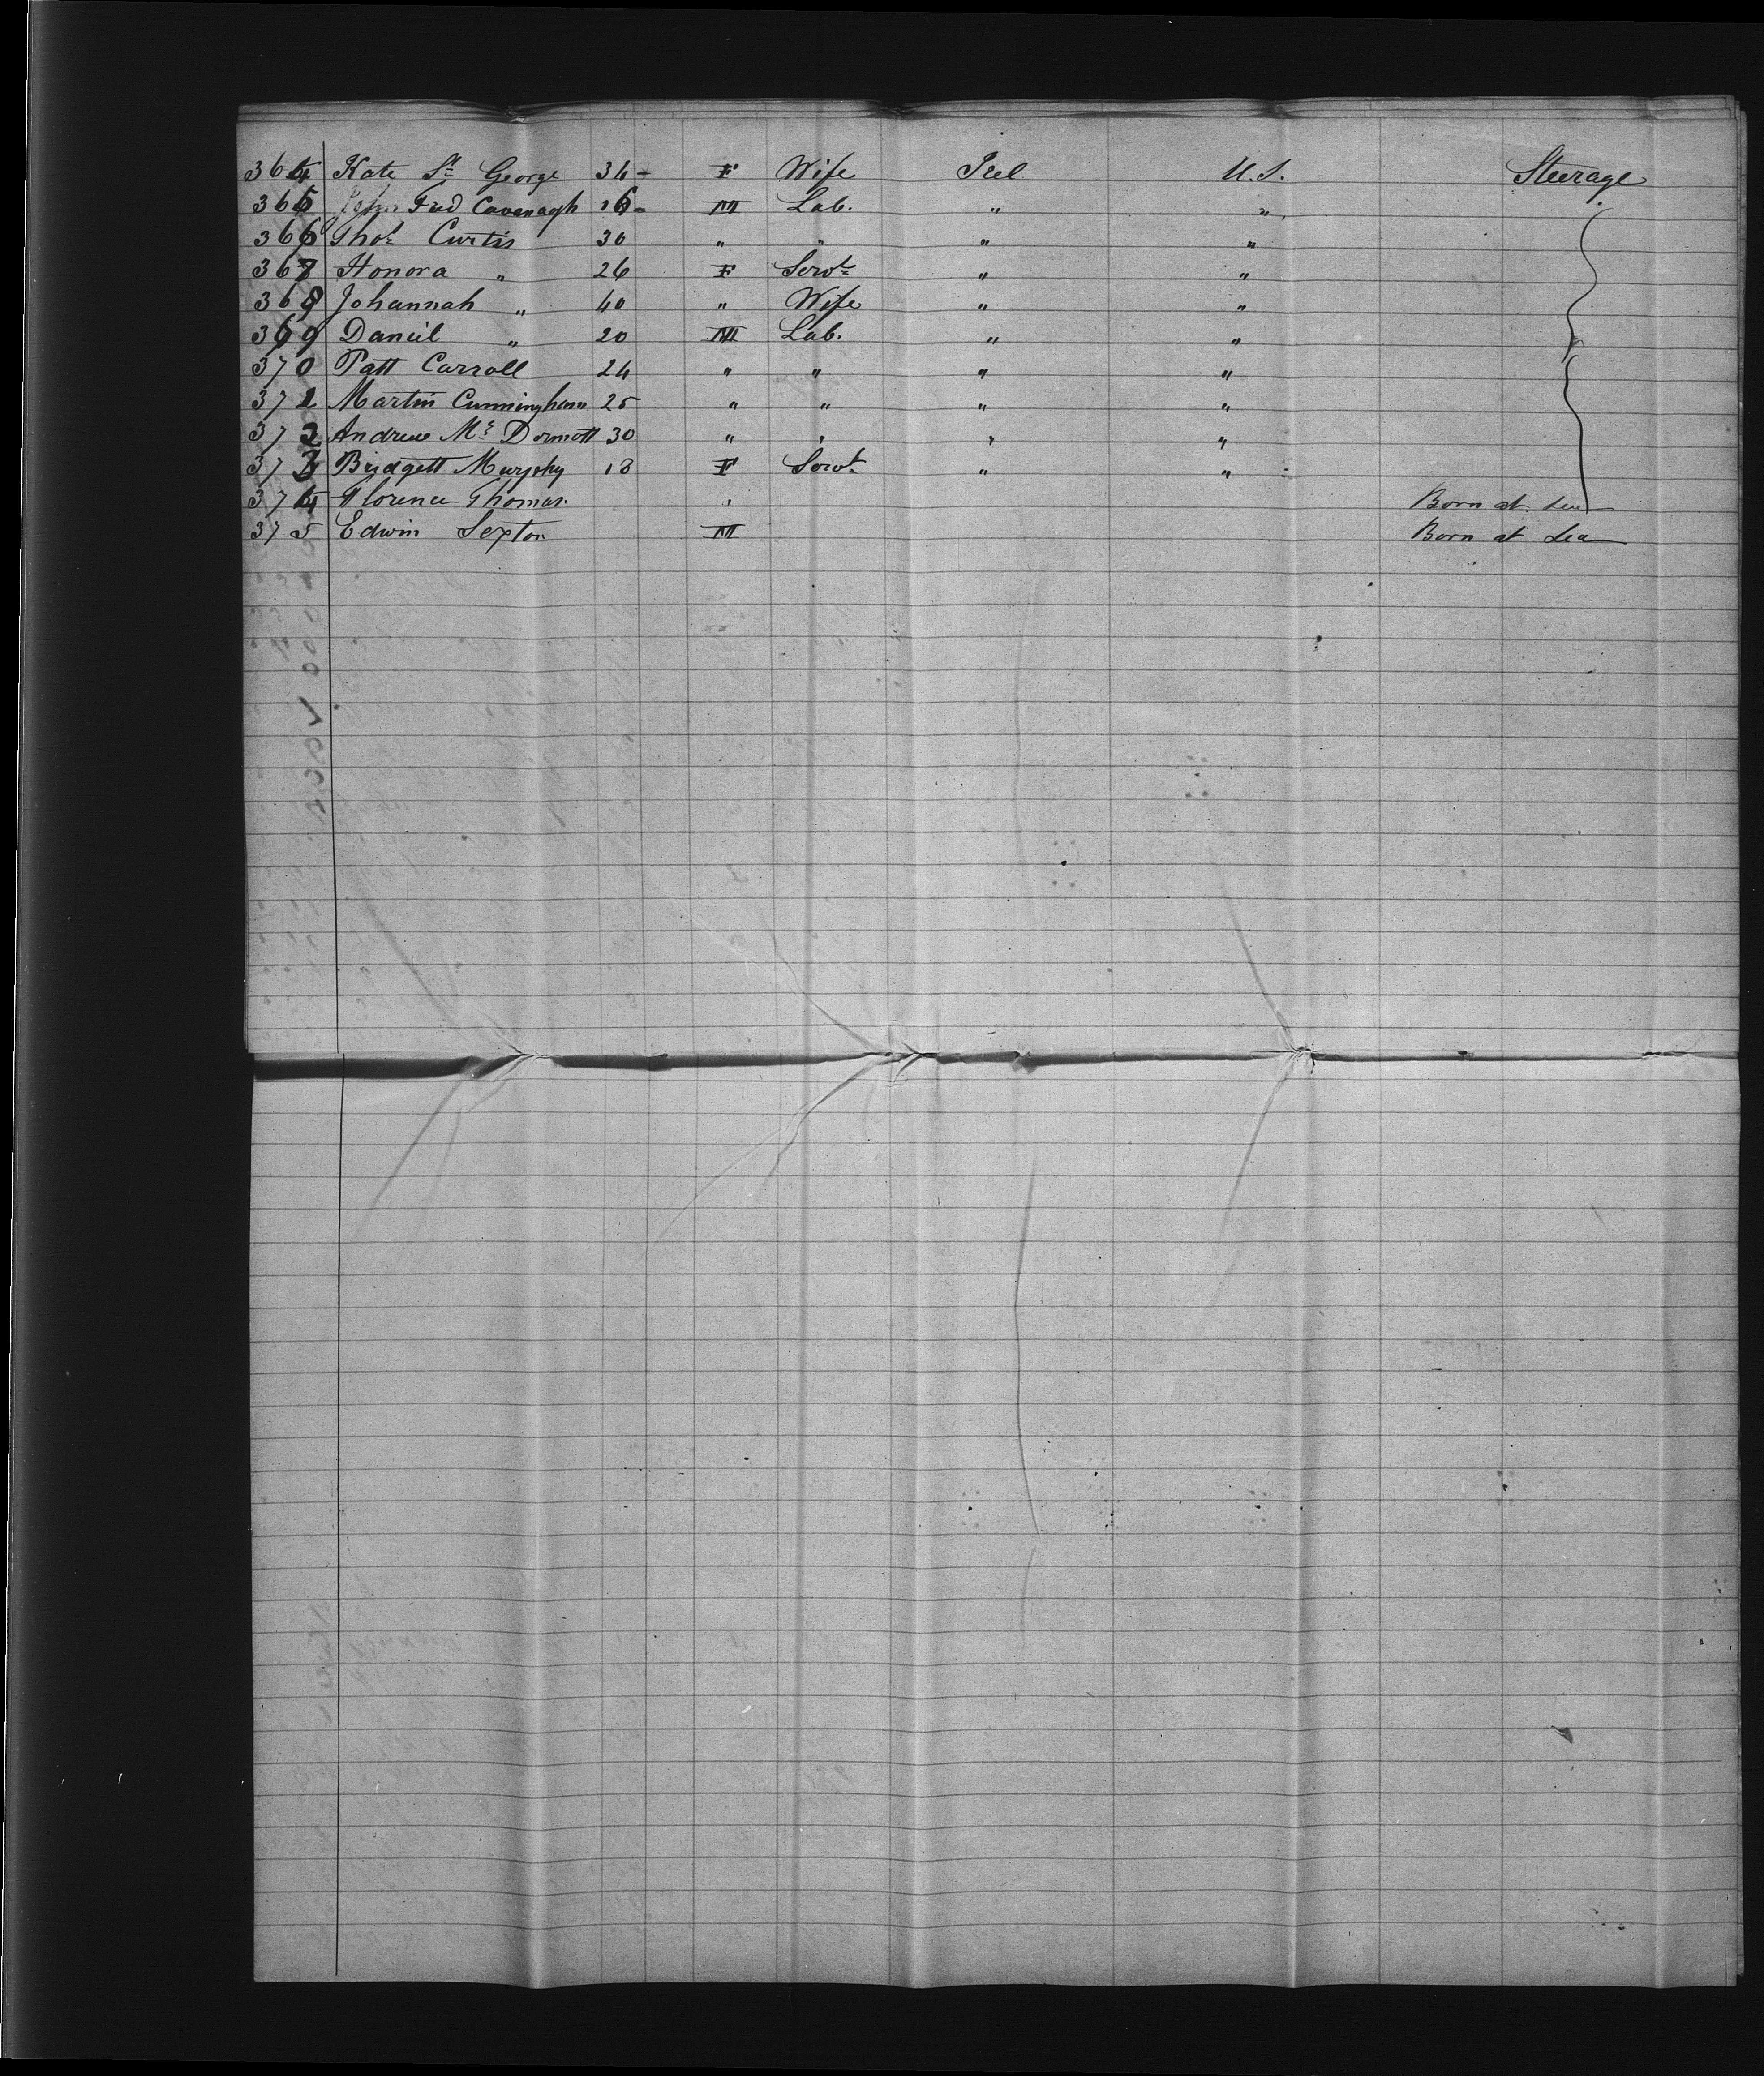 364 Kate St George 34 F Wife Irel U.S. Steerage
365 Fred Cavenagh 16 M Lab. " "
366 Thos Curtis 30 " " " "
367 Honora " 26 F Servt " "
368 Johannah " 40 " Wife " "
369 Daniel " 20 M Lab. " "
370 Patt Carroll 24 " " " "
371 Martin Cunningham 25 " " " "
372 Andrew Mc Dermott 30 " " " "
373 Bridgett Murphy 18 F Servt " "
374 Florence Thomas " Born at Sea
375 Edwin Sexton M Born at Sea